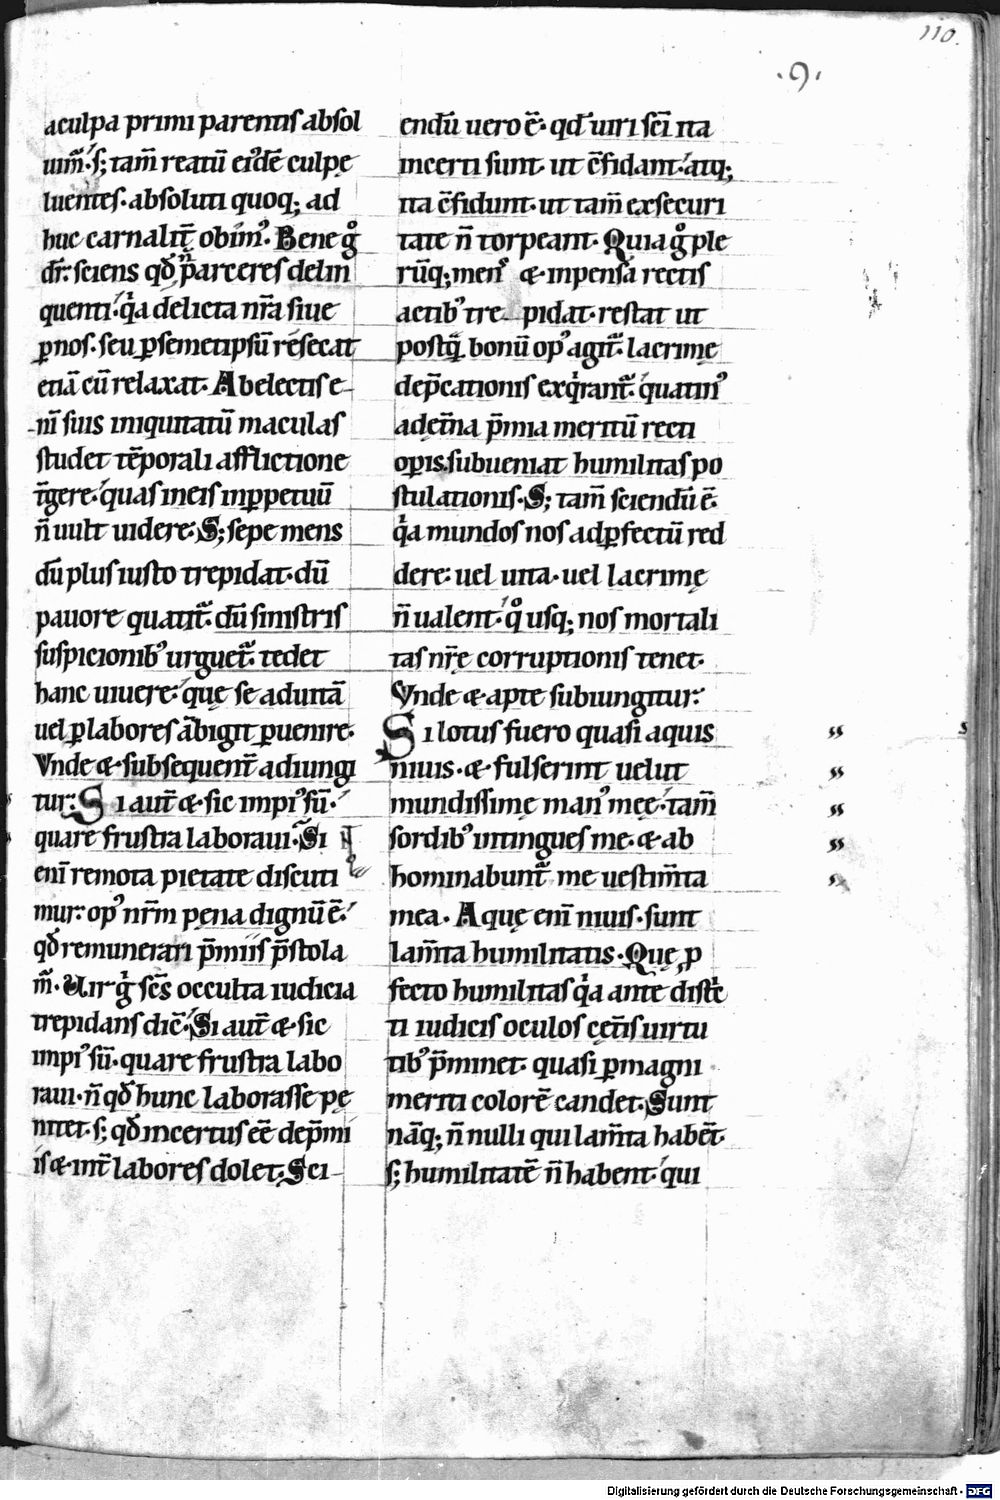 110.
.9.
a culpa primi parentis absol
uim̃; s; tam̃ reatũ eiᵈdẽ culpę
luentes. absoluti quoq; ad
huc carnalit̃ obimꝰ. Bene gͦ
dr̃. sciens qđ ñ parceres delin
quenti. qͥa delicta nr̃a siue
ꝑ nos. seu ꝑ semetipsũ resecat
etiã cũ relaxat. Ab electis e-
ni᷃ suis iniquitatũ maculas
studet tẽporali afflictione
t̃gere. quas in eis in ꝑpetuũ
ñ uult uidere. S; sepe mens
dũ plus iusto trepidat. dũ
pauore quatit᷑. dũ sinistris
suspicionibꝰ urguet᷑. tedet
hanc uiuere. quę se ad uitã
uel ꝑ labores ãbigit ꝑuenire.
Vnde & subsequent̃ adiungi
tur. Si aut̃ & sic impiꝰ sũ.
quare frustra laboraui. Si
eni᷃ remota pietate discuti
mur. opꝰ nr̃m pęna dignũ ẽ.
qđ remunerari p̃miis p̃stola
m᷑. Vir gͦ sc̃s occulta iudicia
trepidans dic̃. Si aut̃ & sic
impiꝰ sũ. quare frustra labo
raui. ñ qđ hunc laborasse pę
nitet. s; qđ incertus eẽ de p̃mi
is & int̃ labores dolet. Sci-
endũ uero ẽ. qđ uiri sc̃i ita
incerti sunt. ut c̃fidant. atq;
ita c̃fidunt. ut tam̃ ex securi
tate ñ torpeant. Quia gͦ ple
rũq; mens & inpensa rectis
actibꝰ trepidat. restat ut
postq̃ bonũ opꝰ agit᷑. lacrimę
dep̃cationis exqͥrant᷑. quatinꝰ
ad ęt̃na p̃mia meritũ recti
oꝑis. subueniat humilitas po
stulationis. S; tam̃ sciendũ ẽ.
qͥa mundos nos ad ꝑfectũ red
dere. uel uita. uel lacrimę
ñ ualent. qͦ usq; nos mortali
tas nr̃ę corruptionis tenet.
Vnde & apte subiungitur.
Si lotus fuero quasi aquis
niuis. & fulserint uelut
mundissimę manꝰ męę. tam̃
sordibꝰ intingues me. & ab
hominabunt᷑ me uestim̃ta
mea. Aquę eni᷃ niuis. sunt
lam̃ta humilitatis. Quę ꝑ
fecto humilitas qͥa ante distc̃
ti iudicis oculos cęt̃is uirtu
tibꝰ p̃minet. quasi ꝑ magni
meriti colorẽ candet. Sunt
nãq; ñ nulli qui lam̃ta habẽt.
s; humilitatẽ ñ habent. qui
Digitalisierung gefördert durch die Deutsche Forschungsgemeinschaft - DFG